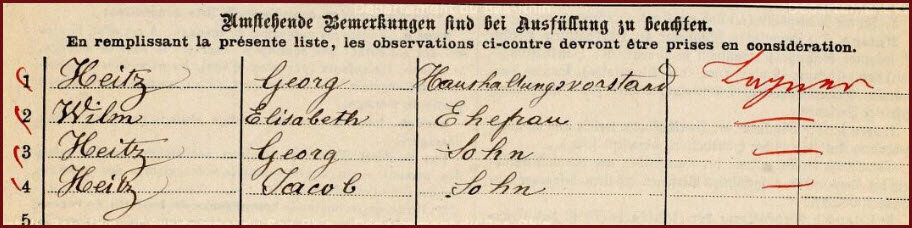 Umstehende Bemerkungen sind bei Ausfüllung zu beachten.
En remplissant la présente liste, les observations ci-contre devront être prises en considération.
1 Heitz Georg Haushaltungsvorstand
2 Wilm Elisabeth Ehefrau —
3 Heitz Georg Sohn —
4 Heitz Jacob Sohn —
5